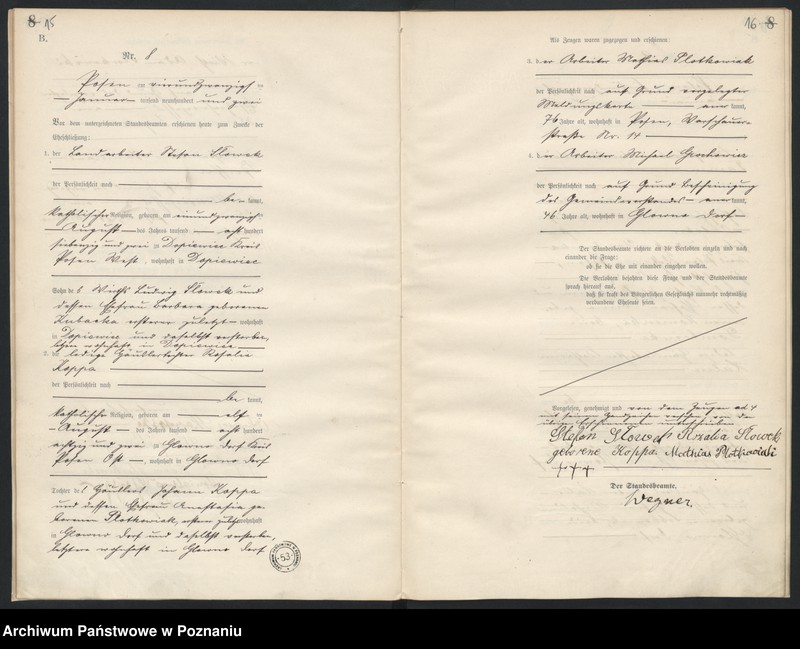 8 15
B.
Nr. 8
Posen am vierundzwanzigsten
Januar tausend neunhundert und zwei
Vor dem unterzeichneten Standesbeamten erschienen heute zum Zwecke der
Eheschließung:
1. der Landarbeiter Stefan Słowek
der Persönlichkeit nach
be kannt,
katholischer Religion, geboren am einundzwanzigsten
August des Jahres tausend acht hundert
siebenzig und zwei zu Dopiewiec Kreis
Posen West, wohnhaft in Dopiewiec
Sohn des Wirths Ludwig Słowek und
dessen Ehefrau Barbara geborenen
ersterer zuletzt wohnhaft
in Dopiewiec und daselbst verstorben,
letztere wohnhaft in Dopiewiec
2. die ledige Häuslertochter Rosalie
Koppa
der Persönlichkeit nach
be kannt,
katholische Religion, geboren am elf ten
August des Jahres tausend acht hundert
achtzig und zwei zu Glowno Dorf Kreis
Posen Ost, wohnhaft in Glowno Dorf
Tochter des Häuslers Johann Koppa
und dessen Ehefrau Anastasia ge-
borenen Plotkowiak, ersterer zuletzt wohnhaft
in Glowno Dorf und daselbst verstorben,
letztere wohnhaft in Glowno Dorf
53
16 8
Als Zeugen waren zugezogen und erschienen:
3. der Arbeiter Mathias Plotkowiak
der Persönlichkeit nach auf Grund vorgelegter
Meldungskarte aner kannt,
76 Jahre alt, wohnhaft in Posen, Warschauer-
straße Nr. 14
4. der Arbeiter Michael
der Persönlichkeit nach auf Grund Bescheinigung
des Gemeindevorstandes aner kannt,
46 Jahre alt, wohnhaft in Glowno Dorf
Der Standesbeamte richtete an die Verlobten einzeln und nach
einander die Frage:
ob sie die Ehe mit einander eingehen wollen.
Die Verlobten bejahten diese Frage und der Standesbeamte
sprach hierauf aus,
daß sie kraft des Bürgerlichen Gesetzbuchs nunmehr rechtmäßig
verbundene Eheleute seien.
Vorgelesen, genehmigt und von dem Zeugen ad 4
mit seinem Handzeichen versehen von den
übrigen Erschienenen unterschrieben
Stefan Słowek Słowek
geborene Koppa. Mathias Plotkowiak
+++
Der Standesbeamte.
Wegner.
Archiwum Państwowe w Poznaniu